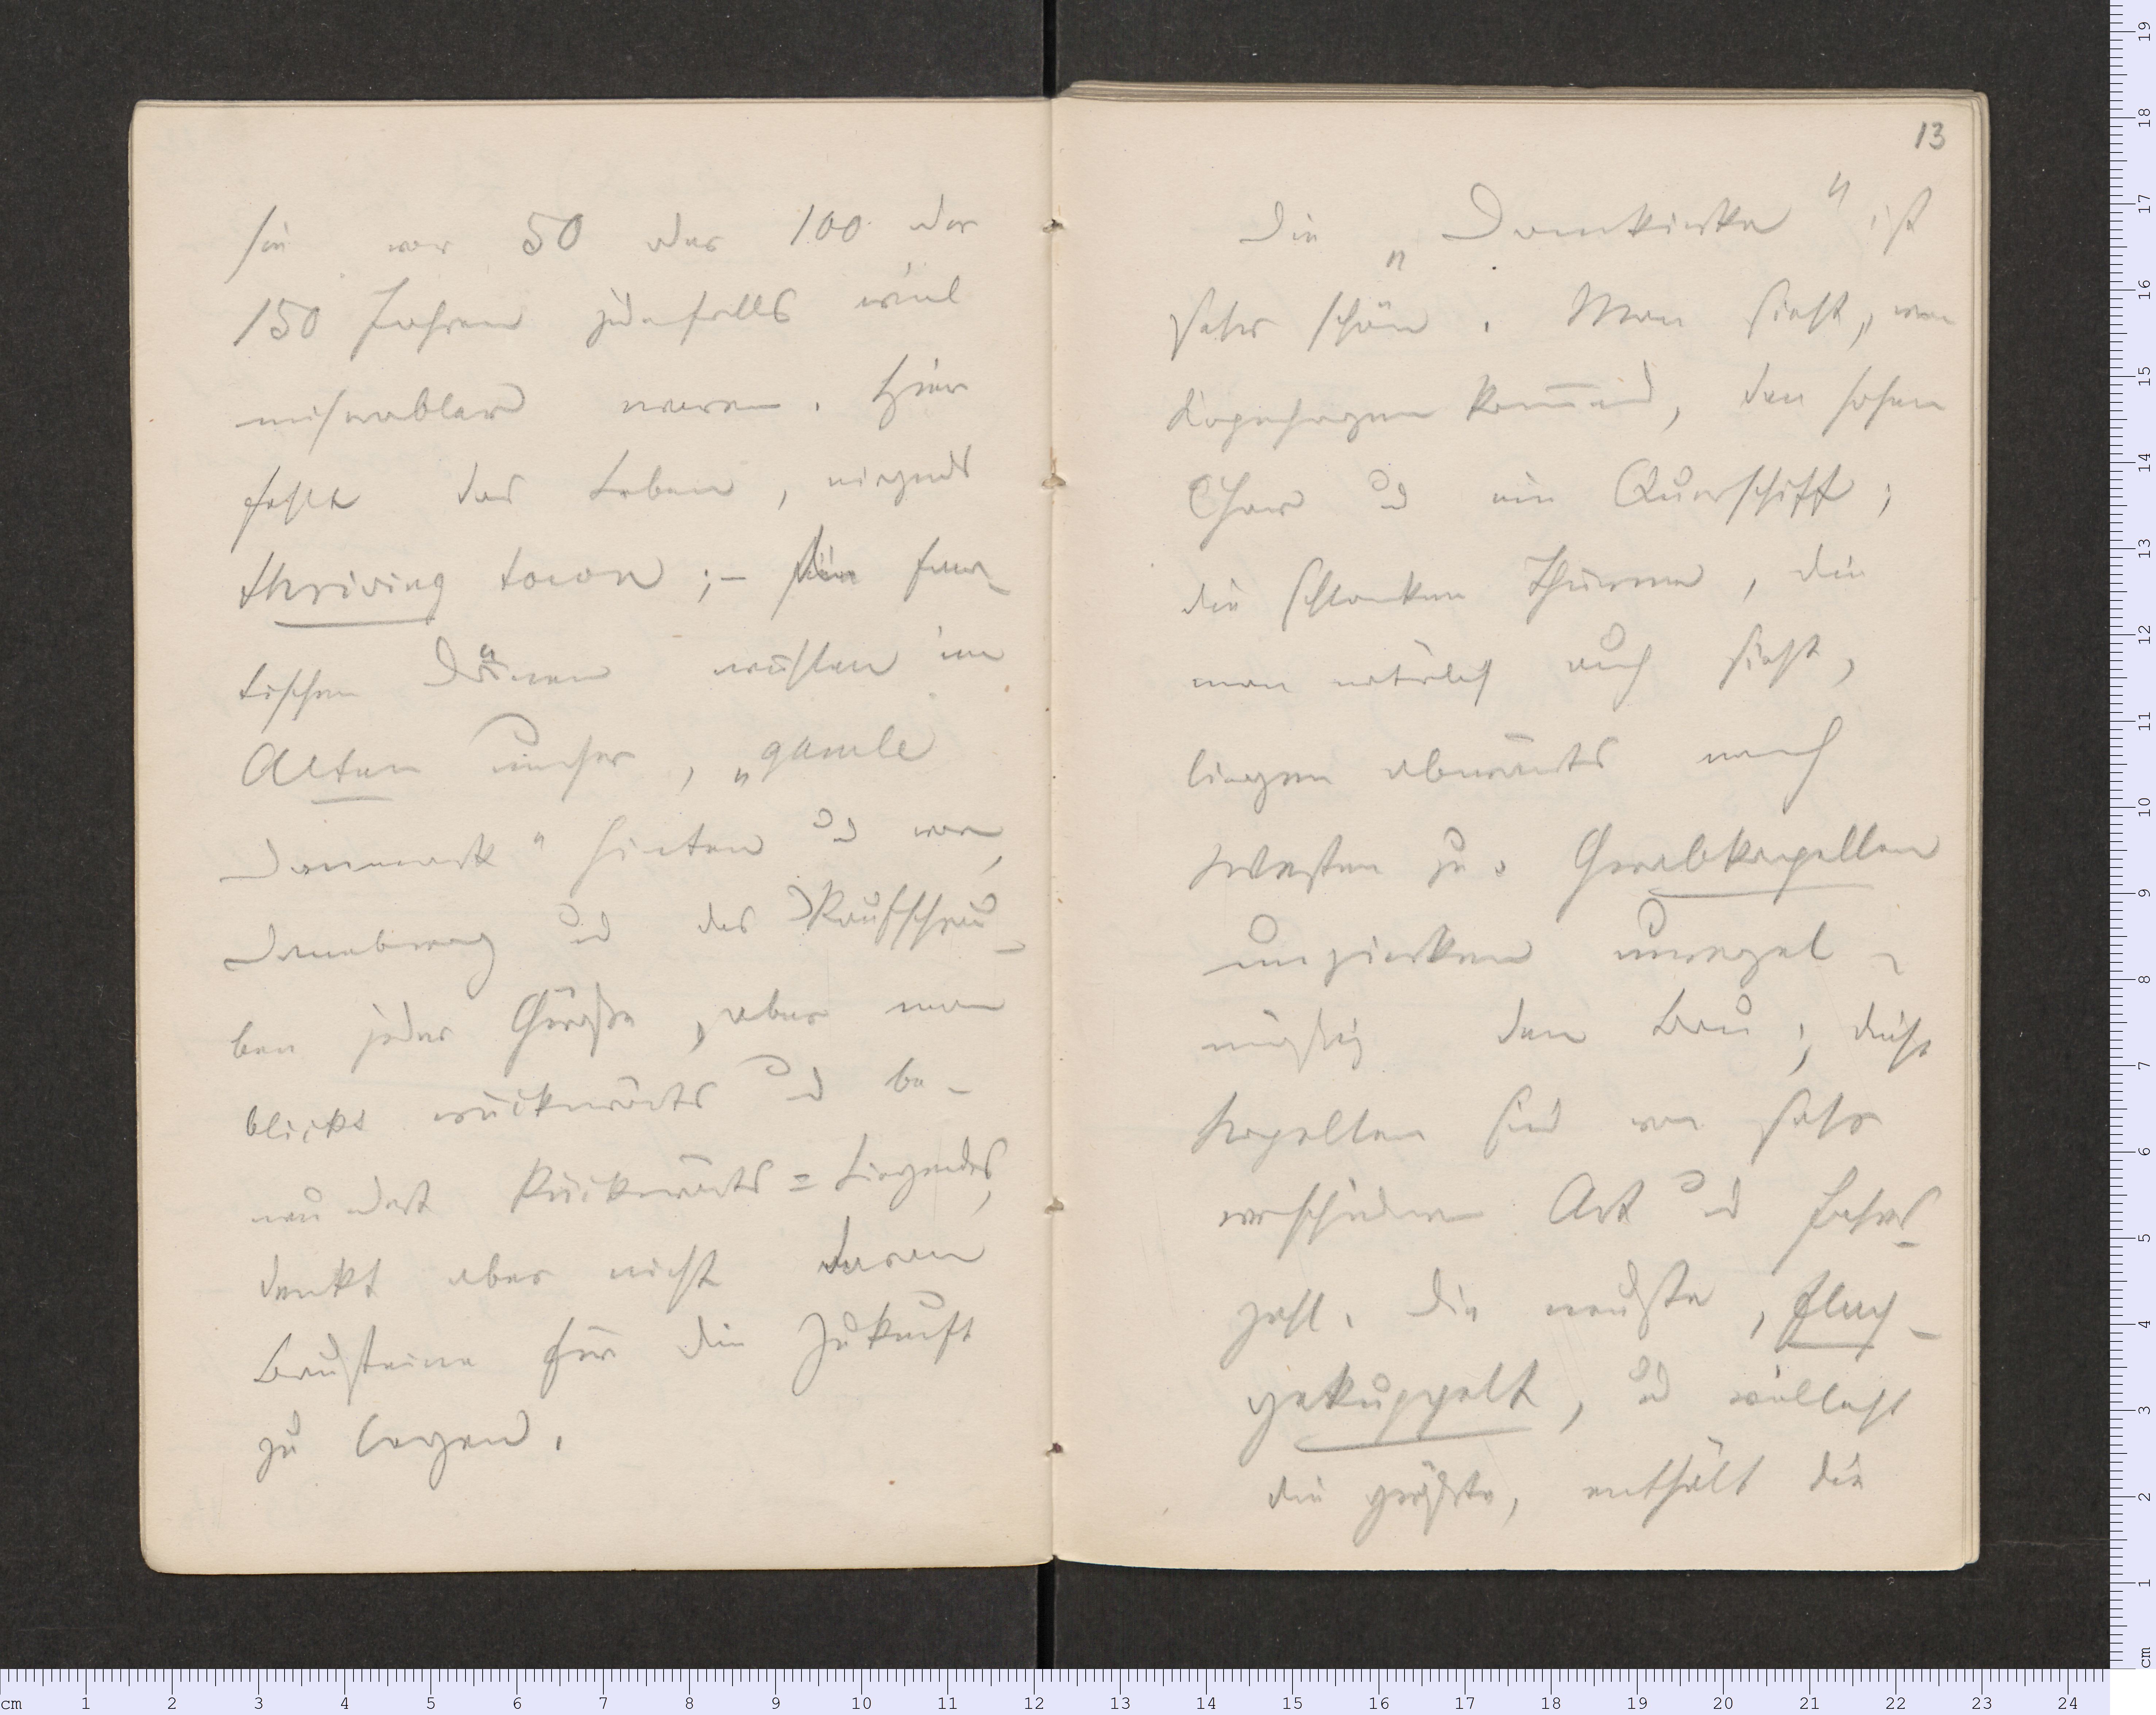 sie vor 50 oder 100 oder
150 Jahren jedenfalls viel
miserabler waren. Hier
fehlt das Leben, nirgends
thriving town ;– die fana-
tischen Dänen wühlen im
Alten umher, „gamle
Danmark“ hinten und vorn,
Danebrog und das Raufschrau-
ben jeder Größe, aber man
blickt rückwärts und be-
neu dert Rückwärts=Liegendes,
denkt aber nicht daran
Bausteine für die Zukunft
zu legen.
13
Die „Domkirke“ ist
sehr schön. Man sieht, von
Kopenhagen kom̅end, den hohen
Chor und ein Querschiff;
die schlanken Thürme, die
man natürlich auch sieht,
liegen abwärts nach
Westen zu. Grabkapellen
umzirken unregel-
mäßig den Bau; diese
Kapellen sind von sehr
verschiedener Art und Jahres-
zahl. Die neuste, flach-
gekuppelt, und vielleicht
die größte, enthält die